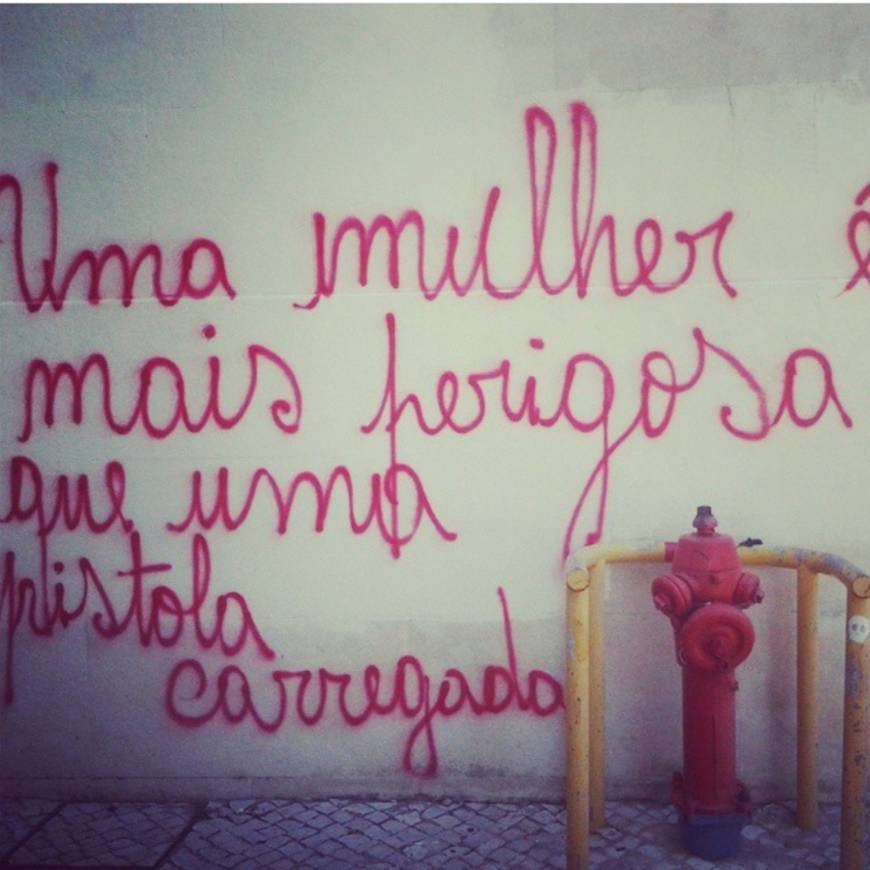 Uma mulher é
mais perigosa
que uma
pistola
carregada